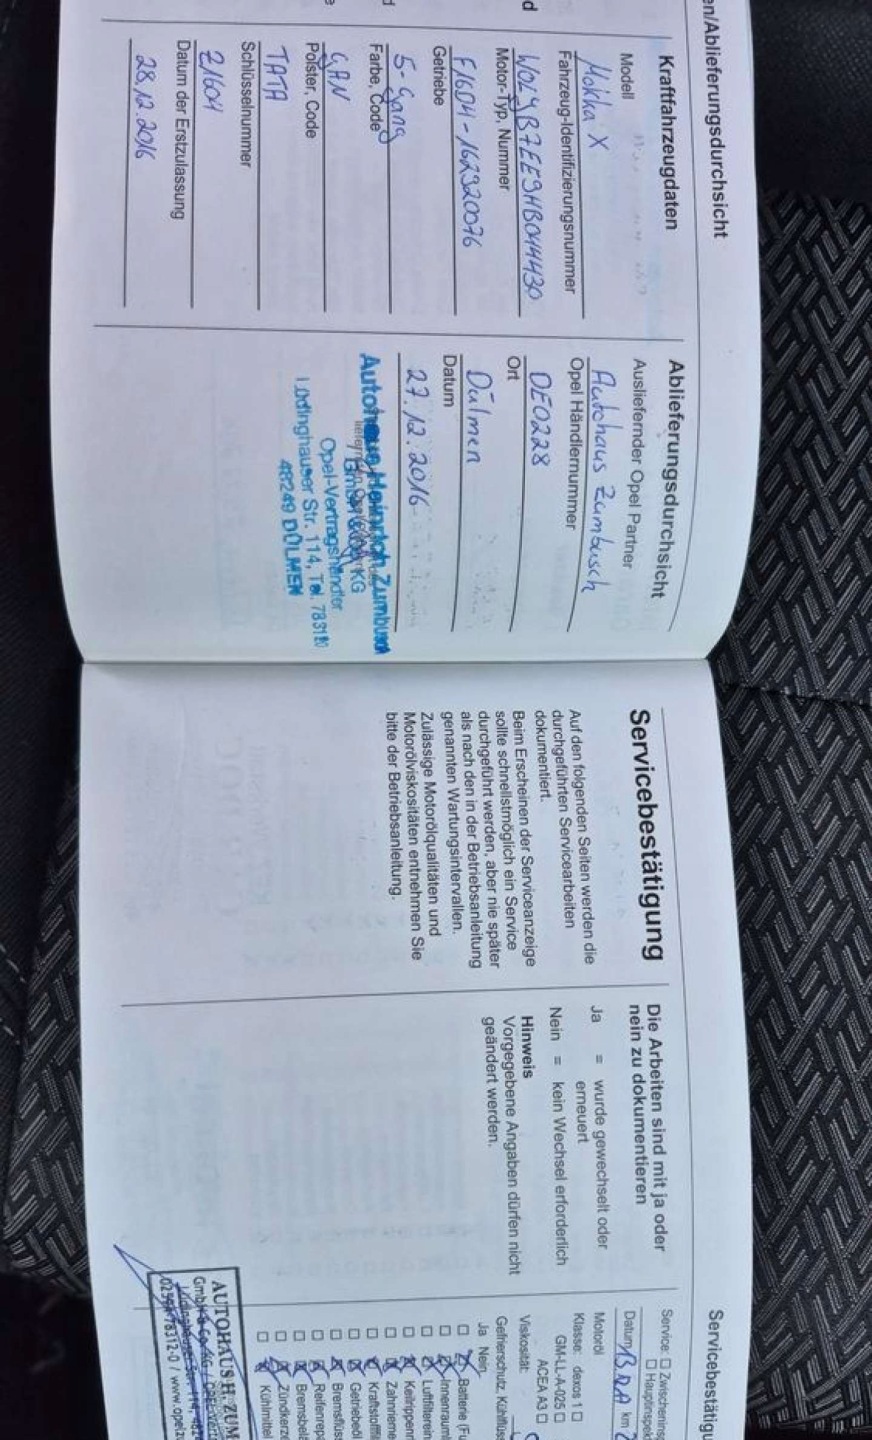 en/Ablieferungsdurchsicht
Kraftfahrzeugdaten
Modell
Mokka X
Fahrzeug-Identifizierungsnummer
W0LJB7EE9HB044430
Motor-Typ, Nummer
F16D4-162920076
Getriebe
5-Gang
Farbe, Code
GAN
Polster, Code
TATA
Schlüsselnummer
Z1604
Datum der Erstzulassung
28.12.2016
Ablieferungsdurchsicht
Ausliefernder Opel Partner
Autohaus Zumbusch
Opel Händlernummer
DE0228
Ort
Dülmen
Datum
27.12.2016
Autohaus Heinrich Zumbusch
GmbH & Co. KG
Opel-Vertragshändler
Lüdinghauser Str. 114, Tel.
48249 DÜLMEN
Servicebestätigung
Auf den folgenden Seiten werden die
durchgeführten Servicearbeiten
dokumentiert.
Beim Erscheinen der Serviceanzeige
sollte schnellstmöglich ein Service
durchgeführt werden, aber nie später
als nach den in der Betriebsanleitung
genannten Wartungsintervallen.
Zulässige Motorölqualitäten und
Motorölviskositäten entnehmen Sie
bitte der Betriebsanleitung.
Die Arbeiten sind mit ja oder
nein zu dokumentieren
Ja = wurde gewechselt oder
erneuert
Nein = kein Wechsel erforderlich
Hinweis
Vorgegebene Angaben dürfen nicht
geändert werden.
AUTOHAUS H. ZUM
GmbH & Co. KG
78312-0 / www.opel
Servicebestätigu
Service: Zwischeninsp
Hauptinspek
Datum km
Motoröl
Klasse: dexos 1
GM-LL-A-025
ACEA A3
Viskosität:
Gefrierschutz, Kühlflüss
Ja Nein
Batterie (Fu
Innenraum
Luftfilterein
Keilrippenr
Zahnrieme
Kraftstofffil
Getriebeöl
Bremsflüss
Reifenrepa
Bremsbelä
Zündkerze
Kühlmittel